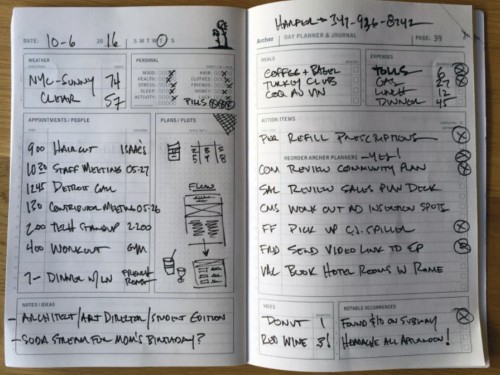 DATE: 10-6 2016 S M T W T F S
WEATHER
NYC-SUNNY 74
CLEAR 57
PERSONAL
MOOD:
HEALTH:
STRESS:
SLEEP:
ACTIVITY:
HAIR:
CLOTHES:
FRIENDS:
MONEY:
PILLS
APPOINTMENTS / PEOPLE
900 HAIRCUT ISAAC'S
1030 STAFF MEETING 05-27
1245 DETROIT CALL
130 CONTRIBUTOR MEETING 05-26
200 TECH STANDUP 2200
400 WORKOUT GYM
7- DINNER W/LN FRENCH ROAST
PLANS / PLOTS
FLOW
NOTES / IDEAS
-ARCHITECT/ART DIRECTOR/STUDENT EDITION
-SODA STREAM FOR MOM'S BIRTHDAY?
Archer DAY PLANNER & JOURNAL PAGE: 39
MEALS
COFFEE + BAGEL
TURKEY CLUB
COQ AU VIN
EXPENSES
TOLLS 6
GAS 27
LUNCH 12
DINNER 45
ACTION ITEMS
PER REFILL PRESCRIPTIONS
REORDER ARCHER PLANNERS -YES!
COM REVIEW COMMUNITY PLAN
SAL REVIEW SALES RUN DECK
CMS WORK OUT AD INSERTION SPOTS
FF PICK UP
FRD SEND VIDEO LINK TO EP
VAC BOOK HOTEL ROOMS IN ROME
VICES
DONUT 1
RED WINE 3!
NOTABLE OCCURRENCES
FOUND $10 ON SUBWAY
HEADACHE ALL AFTERNOON!